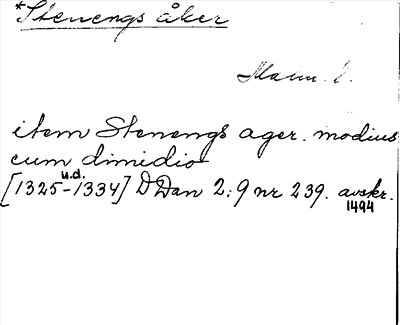 *Stenengs åker
item Stenengs ager. modius
cum dimidio
[1325 u.d. -1334] D Dan 2:9 nr 239. avskr.
1494